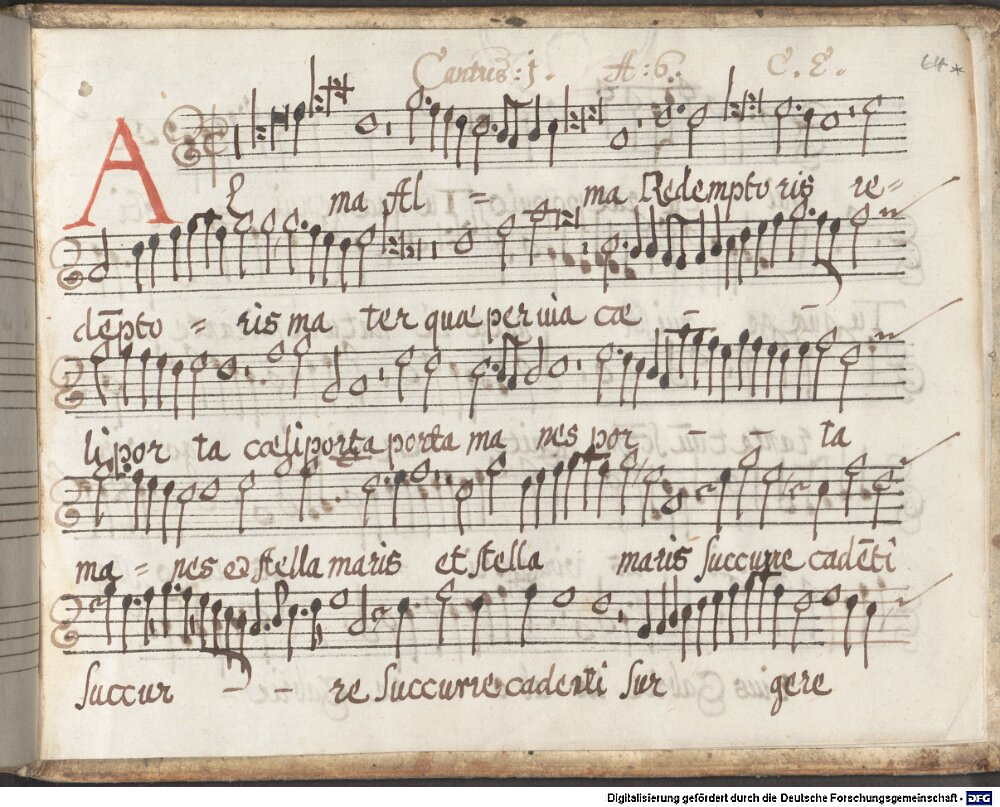 Cantus: 1. A: 6. C. E. 64*
AL ma Al = ma Redemptoris re=
dēpto = ris ma ter quæ pervia cæ
li por ta cæli porta porta ma nes por - - ta
ma = nes et stella maris et stella maris succurre cadēti
succur - - re succurre cadenti sur gere
Digitalisierung gefördert durch die Deutsche Forschungsgemeinschaft - DFG